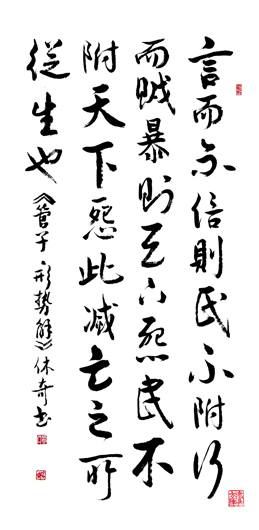 言而不信則民不附行
而賊暴則天下怨民不
附天下怨此滅亡之所
從生也《管子 形勢解》休奇书